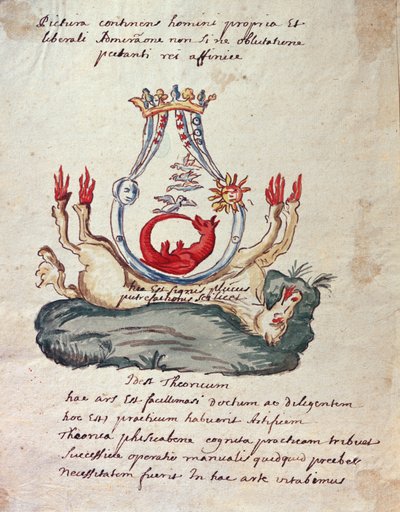 Pictura continens homini propria Et
liberali Admiratione non sine oblectatione
rei affinice
hic Est Signis
putrefactionis Scilicet
Idest Theoricum
hac ars Est facillimasi Doctum ac diligentem
hoc Est practicum habuerit Artificem
Theorica phisicabene cognita practicam tribuet
Successive operatio manualis quidquid praebet
Necessitatem fuerit In hac arte vitabimus